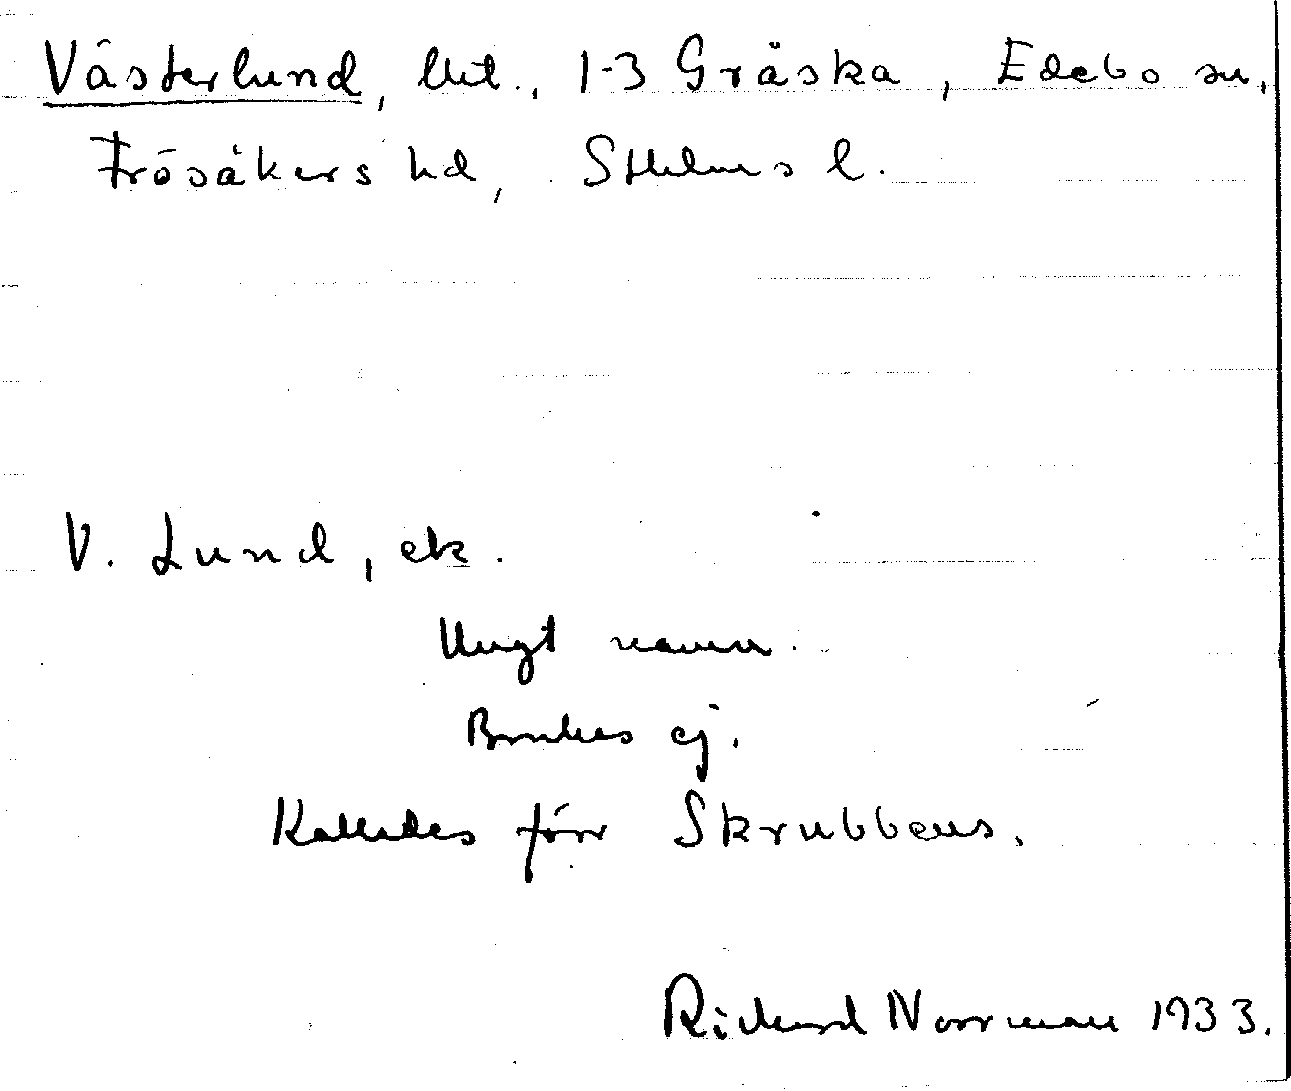 Västerlund, lht., 1-3 Gräska, Edebo sn,
Frösåkers hd, Sthlms l.
V. Lund, ek.
Ungt namn.
Brukas ej.
Kallades förr Skrubbens.
Rickard Norrman 1933.